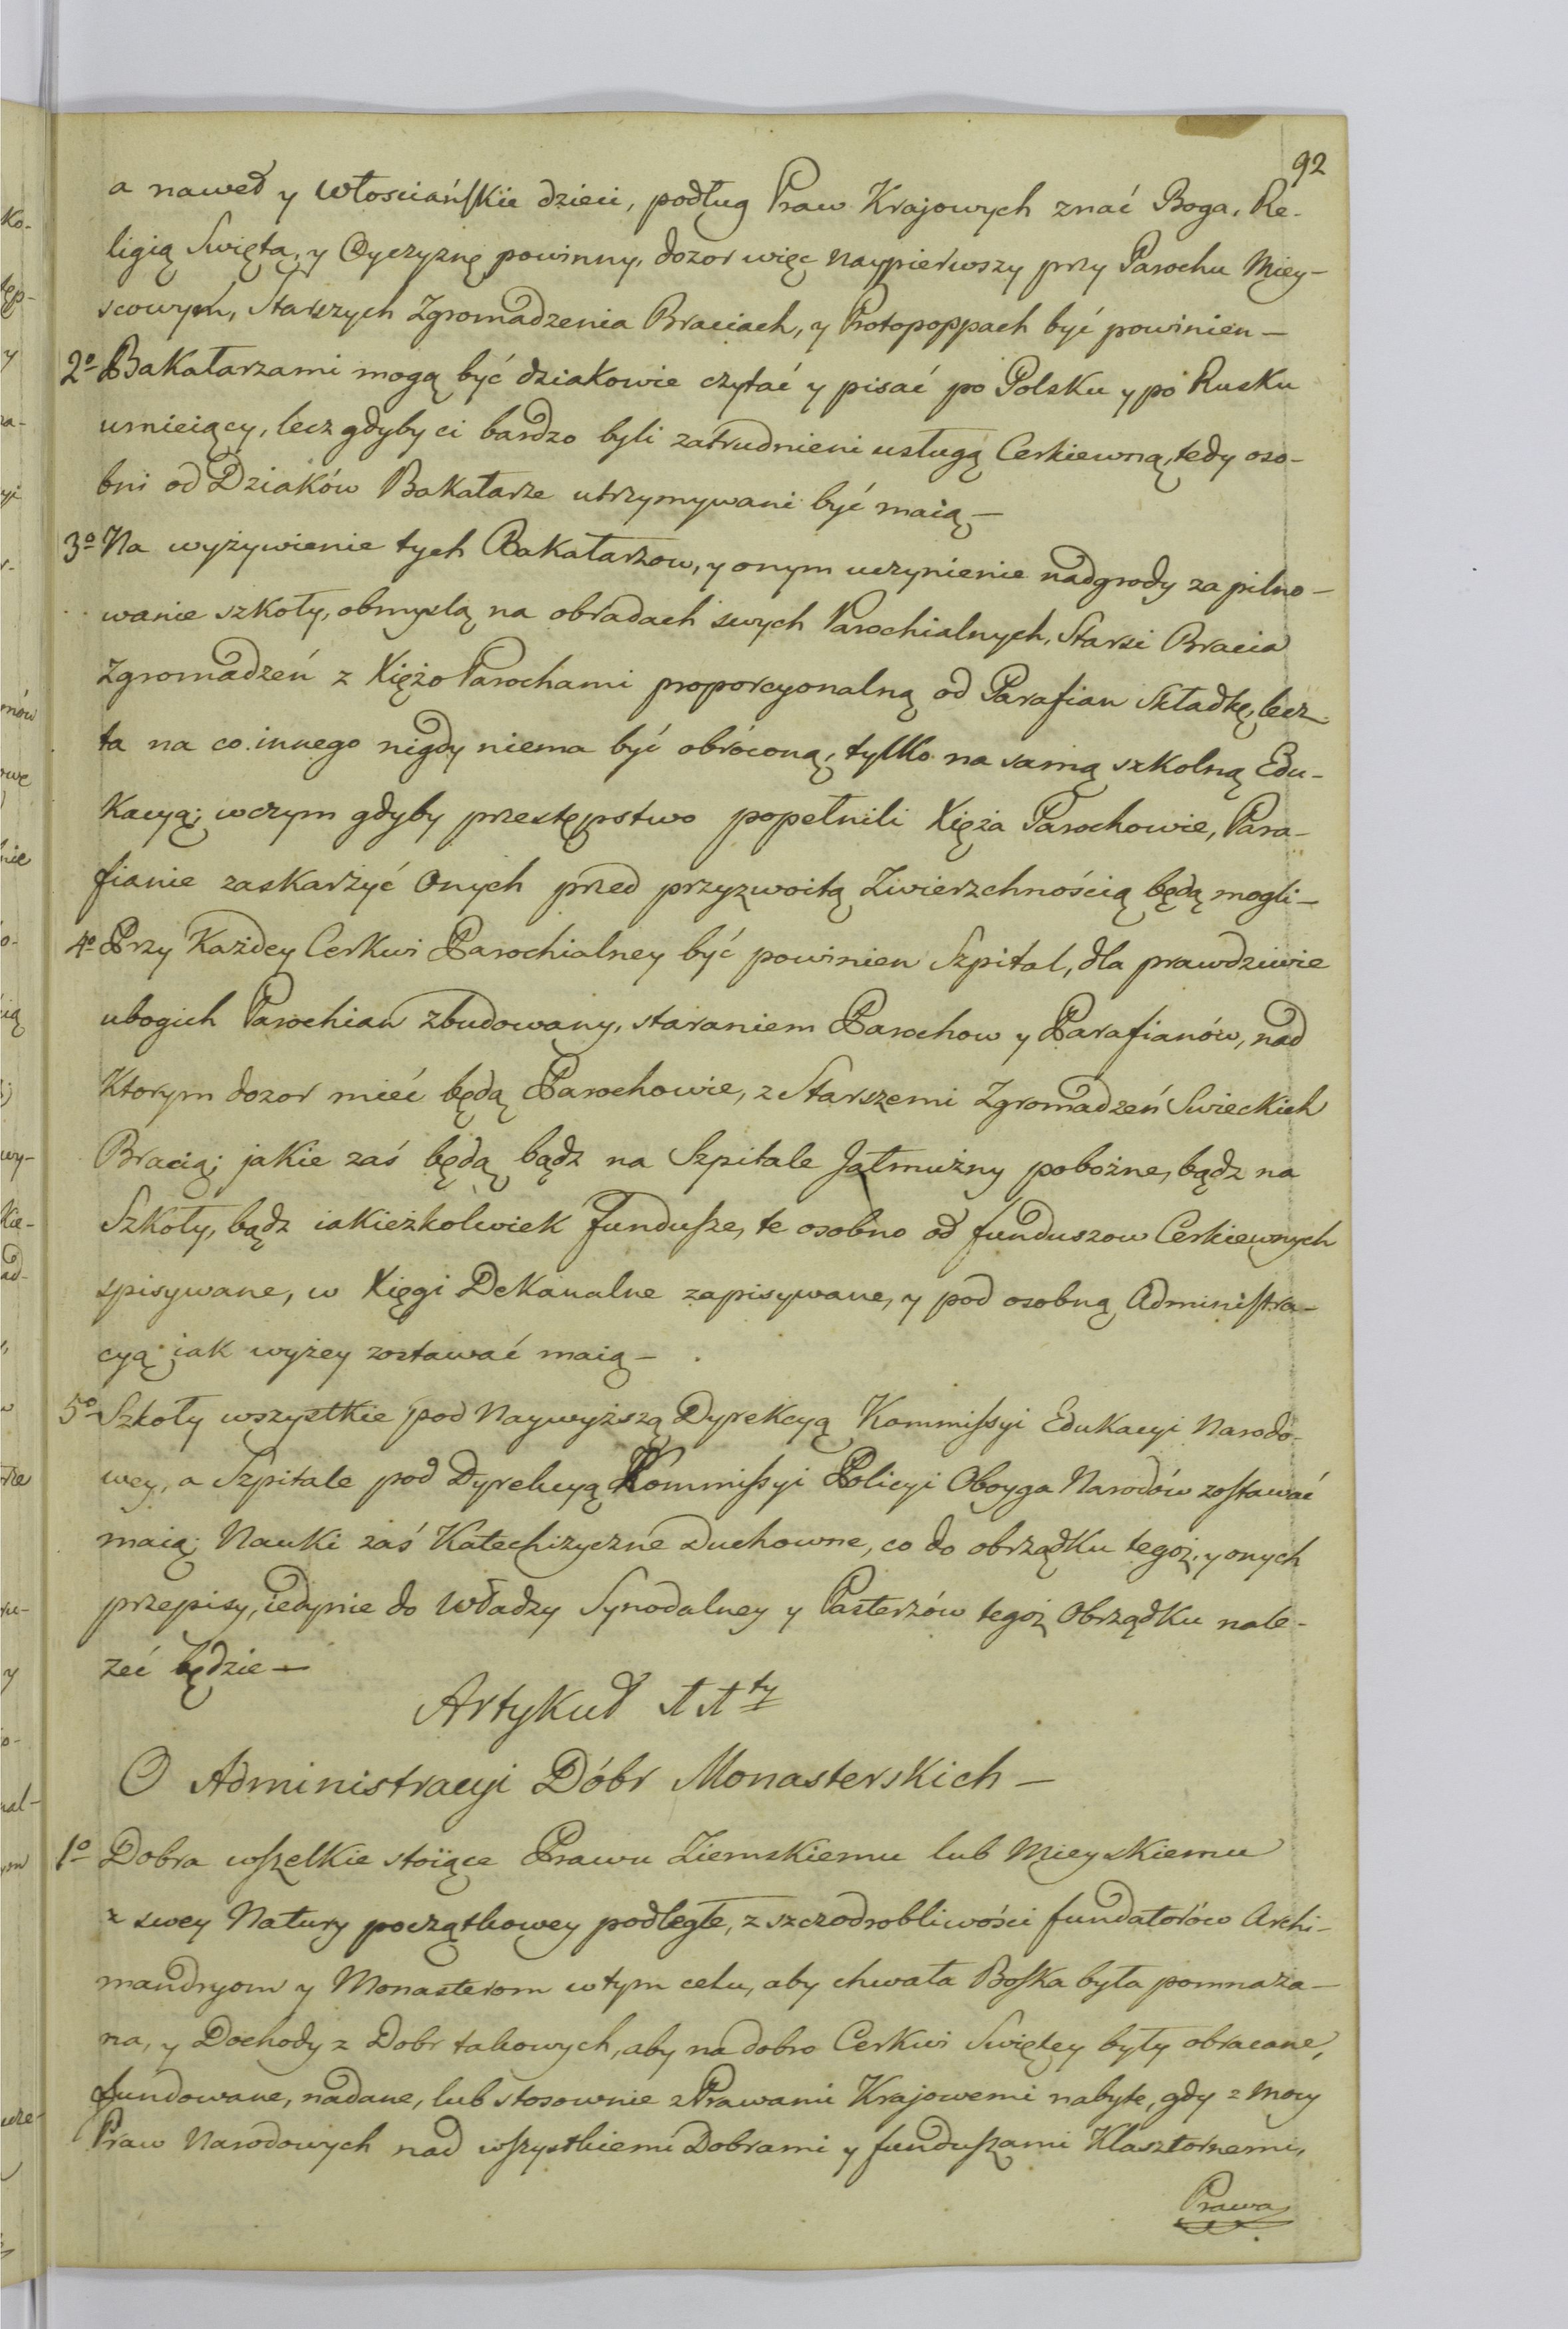 92
a nawed y Włosciańskie dzieci, podług Praw Krajowych znać Boga, Re-
ligią Swiętą, y Oyczyznę powinny, dozor więc naypierwszy przy Parochu Miey-
scowym, Starszych Zgromadzenia Braciach, y Protopoppach być powinien —
2º Bakałarzami mogą być dziakowie czytać y pisać po Polsku y po Rusku
umieiący, lecz gdyby ci bardzo byli zatrudnieni usługą Cerkiewną, tedy oso-
bni od Dziaków Bakałarze utrzymywani być maią —
3º Na wyżywienie tych Bakałarzow, y onym uczynienie nadgrody za pilno-
wanie szkoły, obmyslą na obradach swych Parochialnych, Starsi Bracia
Zgromadzeń z Xiężo Parochami proporcyonalną od Parafian Składkę, lecz
ta na co innego nigdy niema być obróconą, tylko na samą szkolną Edu-
kacyą; wczym gdyby przestępstwo popełnili Xięża Parochowie, Para-
fianie zaskarżyć Onych przed przyzwoitą Zwierzchnością będą mogli —
4º Przy Każdey Cerkwi Parochialney być powinien Szpital, dla prawdziwie
ubogich Parochian zbudowany, staraniem Parochow y Parafianów, nad
Ktorym dozor mieć będą Parochowie, z Starszemi Zgromadzeń Swieckich
Bracią; jakie zaś będą bądz na Szpitale Jałmużny pobożne, bądz na
Szkoły, bądz iakieżkolwiek fundusze, te osobno od funduszow Cerkiewnych
spisywane, w Xięgi Dekanalne zapisywane, y pod osobną Administra-
cyą iak wyżey zostawać maią —
5º Szkoły wszystkie pod Naywyższą Dyrekcyą Kommissyi Edukacyi Narodo-
wey, a Szpitale pod Dyrekcyą Kommissyi Policyi Oboyga Narodów zostawać
maią; Nauki zaś Katechizyczne Duchowne, co do obrządku tegoż, y onych
przepisy, iedynie do Władzy Synodalney y Pasterzów tegoż Obrządku nale-
żeć będzie —
Artykuł 11ty
O Administracyi Dóbr Monasterskich —
1º Dobra wszelkie stoiące Prawu Ziemskiemu lub Mieyskiemu
z swey Natury początkowey podległe, z szczodrobliwości fundatorów Archi-
mandryom y Monasterom w tym celu, aby chwała Boska była pomnaża-
na, y Dochody z Dobr takowych, aby na dobro Cerkwi Swiętey były obracane,
fundowane, nadane, lub stosownie z Prawami Krajowemi nabyte, gdy z mocy
Praw Narodowych nad wszystkiemi Dobrami y funduszami Klasztornemi,
Prawa